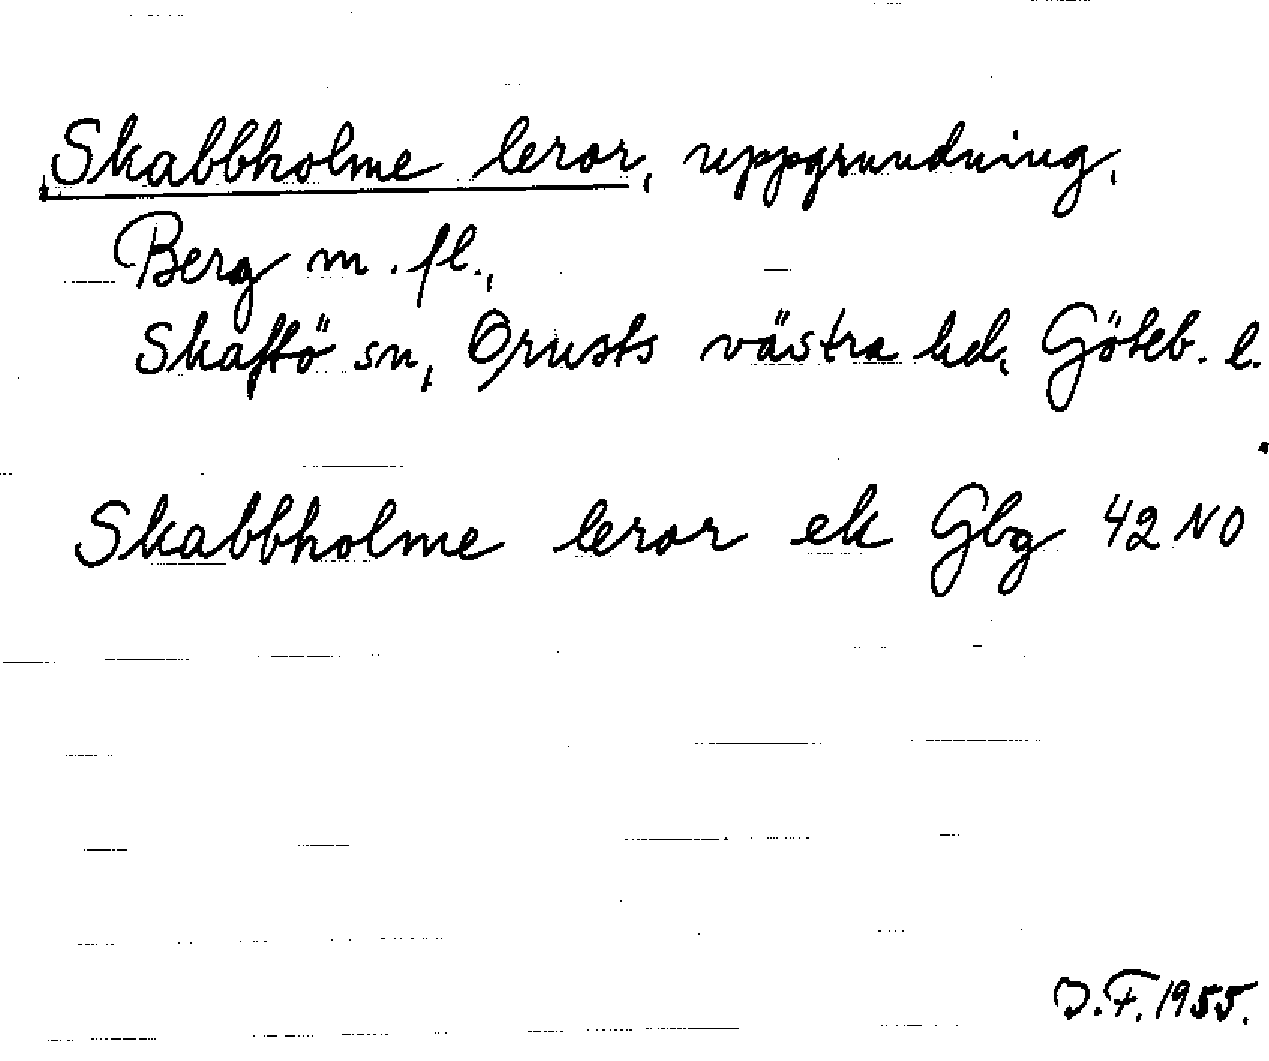 Skabbholme leror, uppgrundning,
Berg m. fl.,
Skaftö sn, Orusts västra hd, Göteb. l.
Skabbholme leror ek Gbg 42 NO
D.F. 1955.